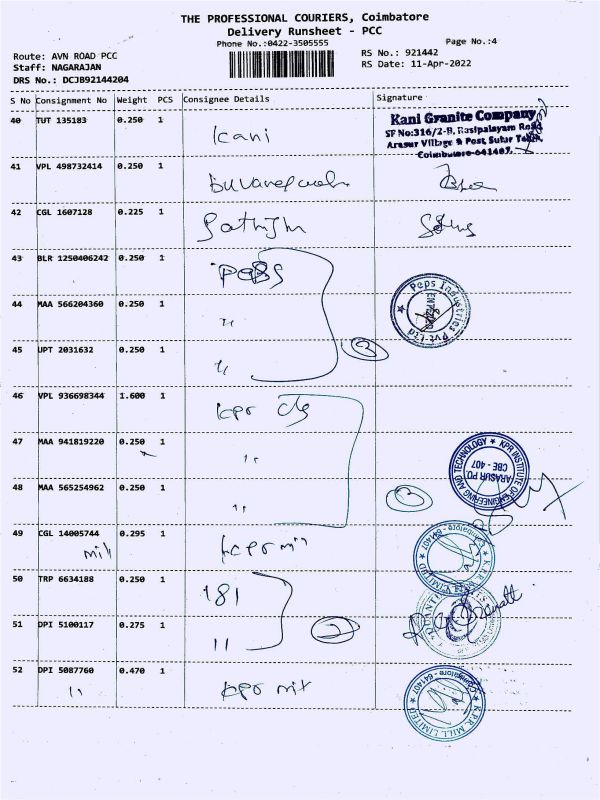 THE PROFESSIONAL COURIERS, Coimbatore
Delivery Runsheet - PCC
Phone No.:0422-3505555
Page No.:4
Route: AVN ROAD PCC
Staff: NAGARAJAN
DRS No.: DCJB92144204
RS No.: 921442
RS Date: 11-Apr-2022
S No Consignment No Weight PCS Consignee Details Signature
40 TUT 135183 0.250 1 Kani
Kani Granite Company
SF No:316/2-B, Rasipalayam Road
Arasur Village & Post, Sulur Taluk,
Coimbatore-641407.
41 VPL 498732414 0.250 1
42 CGL 1607128 0.225 1 Sathish
43 BLR 1250406242 0.250 1 Peps
Peps Industries Pvt Ltd
44 MAA 566204360 0.250 1 "
45 UPT 2031632 0.250 1 "
3
46 VPL 936698344 1.600 1 kpr clg
47 MAA 941819220 0.250 1 "
KPR INSTITUTE OF ENGINEERING AND TECHNOLOGY
ARASUR PO.
CBE - 407
48 MAA 565254962 0.250 1 "
3
49 CGL 14005744 0.295 1 kpr mill
mill
K.P.R. MILL LIMITED
Coimbatore - 641407
50 TRP 6634188 0.250 1 181
51 DPI 5100117 0.275 1 "
2
52 DPI 5087760 0.470 1 kpr mill
"
K.P.R. MILL LIMITED
Coimbatore - 641407